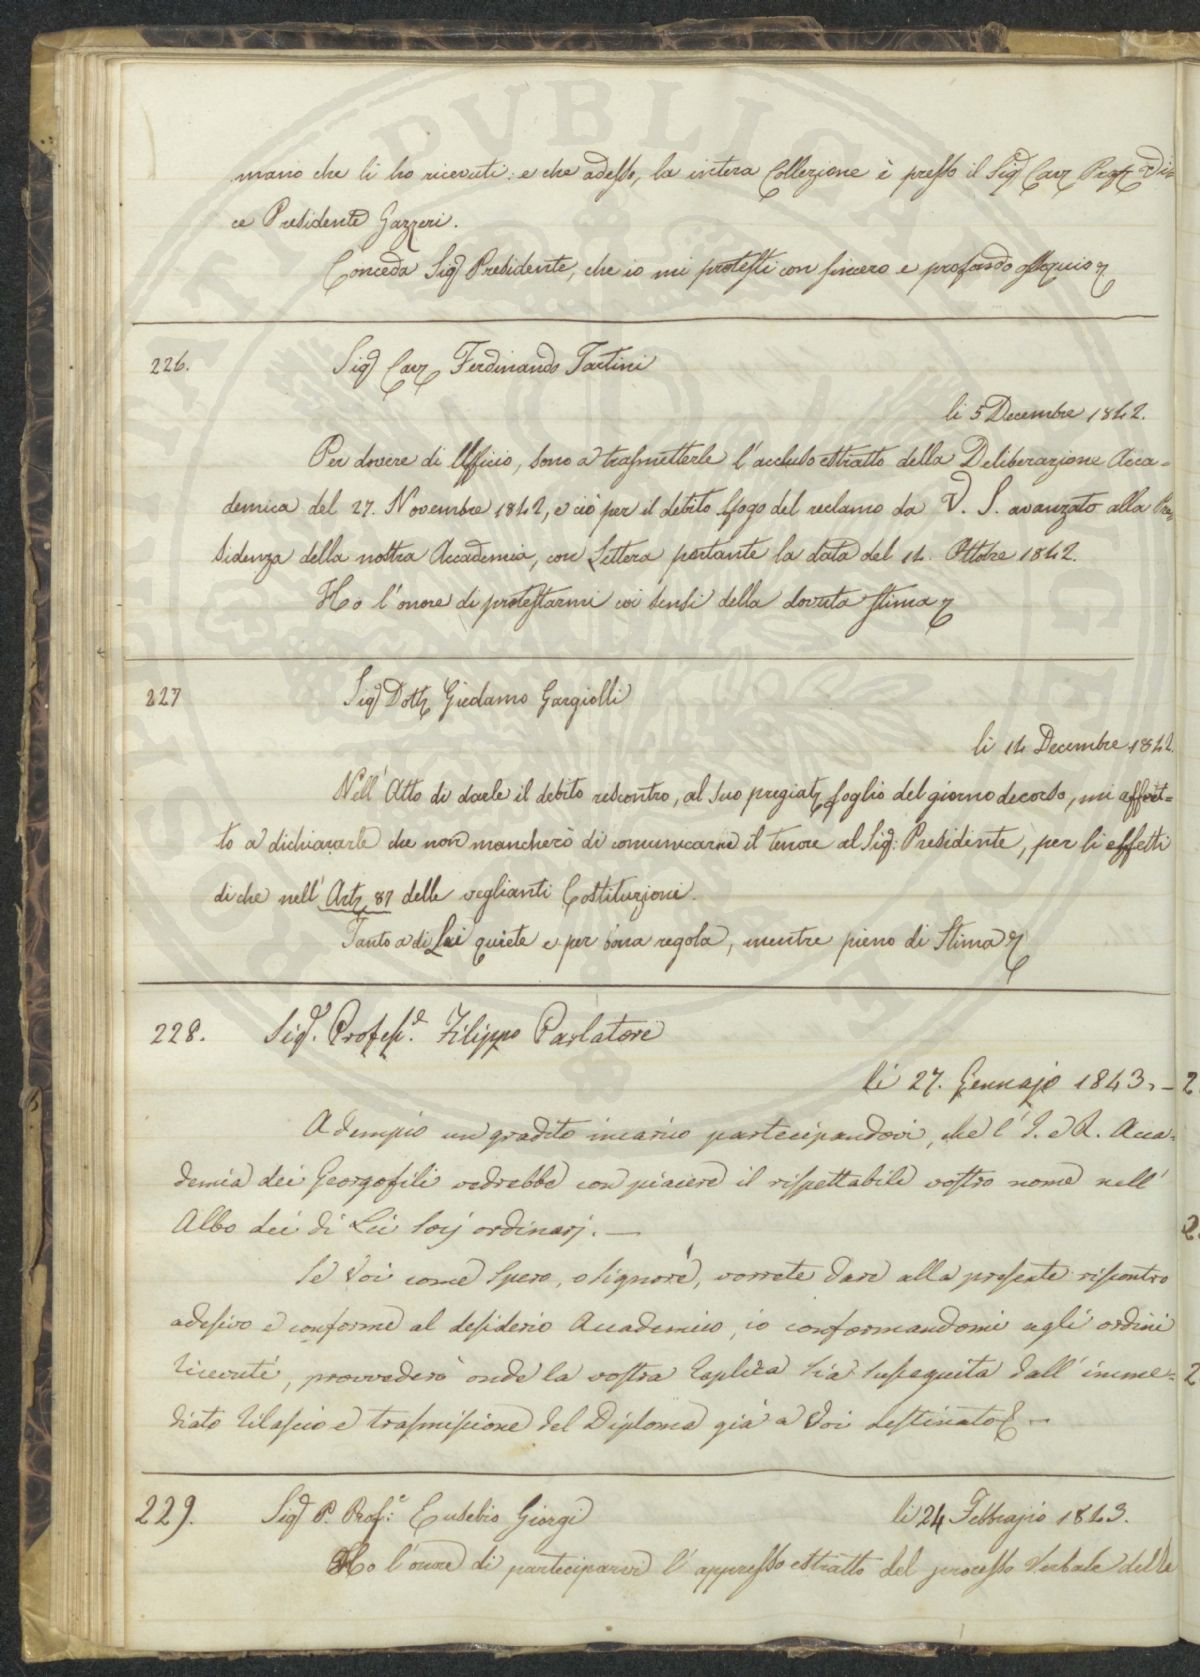 mano che li ho ricevuti: e che adesso, la intera Collezione è presso il Sig Cav Prof Vi=
ce Presidente Gazzeri.
Conceda Sig Presidente, che io mi protesti con sincero e profondo ossequio
226. Sig Cav Ferdinando Tartini
li 5 Decembre 1842.
Per dovere di Ufficio, sono a trasmetterle l'accluso estratto della Deliberazione Acca=
demica del 27. Novembre 1842, e ciò per il debito sfogo del reclamo da V. S. avanzato alla Pre
sidenza della nostra Accademia, con Lettera portante la data del 14. Ottobre 1842.
Ho l'onore di protestarmi coi sensi della dovuta stima
227 Sig Dott Giedamo Gargiolli
li 14 Decembre 1842.
Nell'Atto di darle il debito riscontro, al suo pregiat foglio del giorno decorso, mi affret=
to a dichiararle che non mancherò di comunicarne il tenore al Sig: Presidente, per li effetti
di che nell'Art 87 delle veglianti Costituzioni.
Tanto a di Lei quiete e per sua regola, mentre pieno di Stima
228. Sig.r Profess.e Filippo Parlatore
li 27. Gennajo 1843. –
Adempio un gradito incarico partecipandovi, che l'I. e R. Acca=
demia dei Georgofili vedrebbe con piacere il rispettabile vostro nome nell'
Albo dei di Lei Socj ordinarj. —
Se Voi come spero, o Signore, vorrete dare alla presente riscontro
adesivo e conforme al desiderio Accademico, io conformandomi agli ordini
ricevuti, provvederò onde la vostra replica sia susseguita dall'imme=
diato rilascio e trasmissione del Diploma già a Voi destinato —
229. Sig P. Prof: Eusebio Giorgi li 24 Febbrajo 1843.
Ho l'onore di parteciparvi l'appresso estratto del processo Verbale della